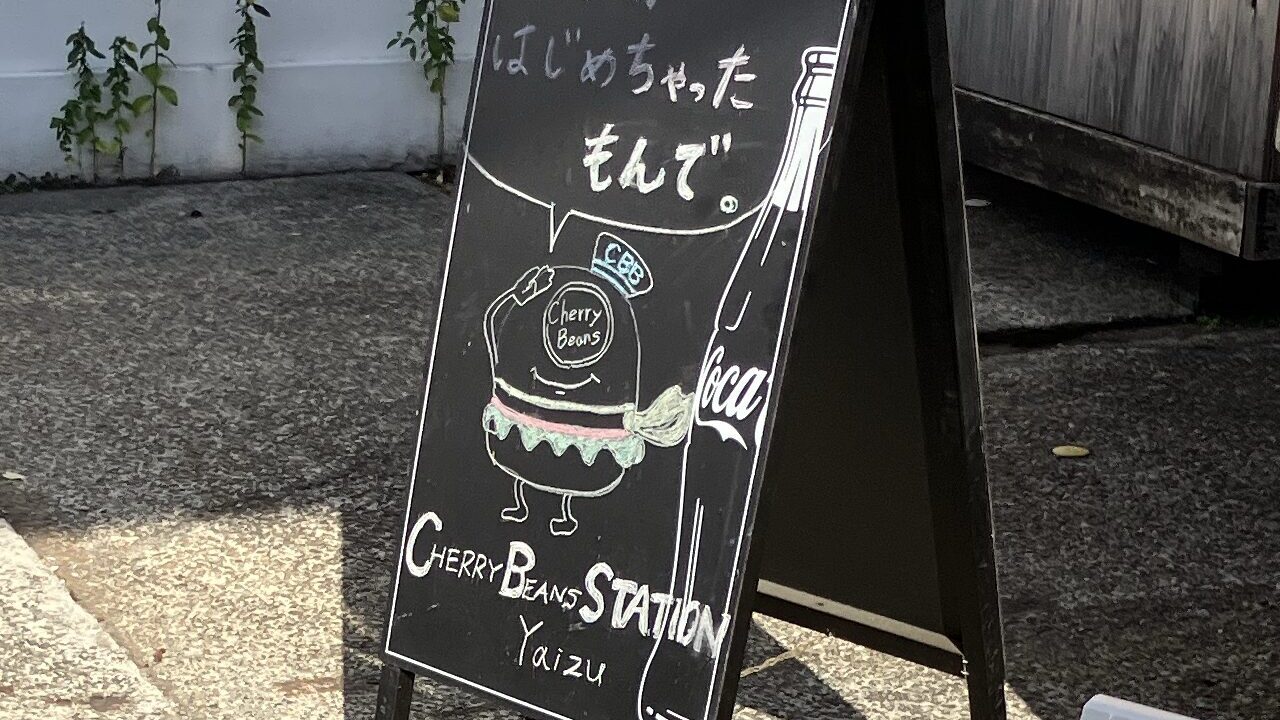 はじめちゃった
もんで。
CBB
Cherry
Beans
Coca
CHERRY BEANS STATION
Yaizu